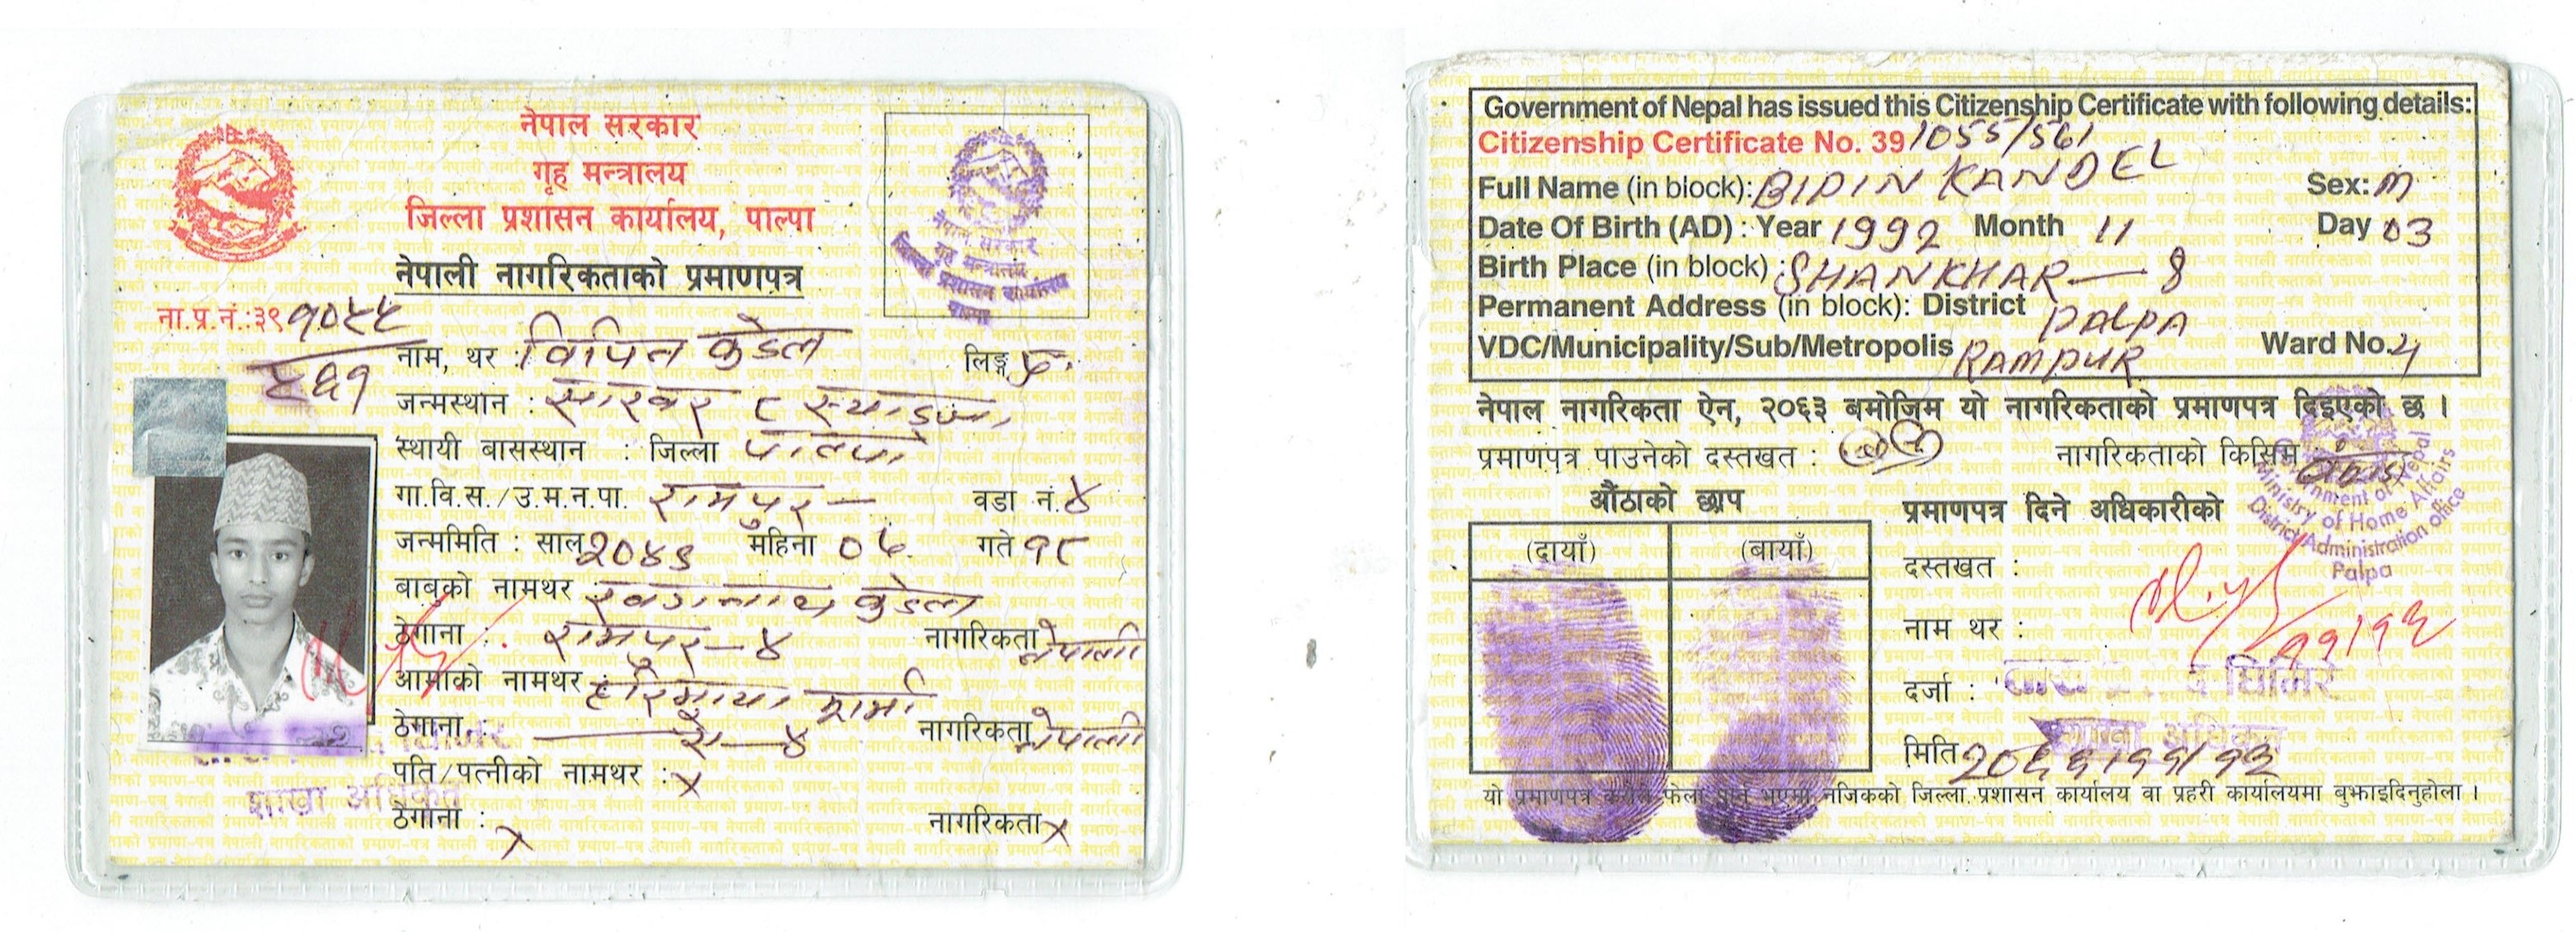 नेपाल सरकार
गृह मन्त्रालय
जिल्ला प्रशासन कार्यालय, पाल्पा
नेपाली नागरिकताको प्रमाणपत्र
नेपाल सरकार
गृह मन्त्रालय
जिल्ला प्रशासन कार्यालय
पाल्पा
ना.प्र.नं.:३९ १०५५
५६१
नाम, थर : विपिन कँडेल लिङ्ग पु.
जन्मस्थान : साखर ८ स्याङ्जा
स्थायी बासस्थान : जिल्ला पाल्पा
गा.वि.स./उ.म.न.पा. रामपुर – वडा नं. ४
जन्ममिति : साल २०४९ महिना ०७ गते १८
बाबुको नामथर : कँडेल
ठेगाना : रामपुर – ४ नागरिकता नेपाली
आमाको नामथर : हरिमाया शर्मा
ठेगाना : ऐ – ४ नागरिकता नेपाली
पति/पत्नीको नामथर : x
शाखा अधिकृत
ठेगाना : x नागरिकता x
Government of Nepal has issued this Citizenship Certificate with following details:
Citizenship Certificate No. 39/1055/561
Full Name (in block): BIPIN KANDEL Sex: M
Date Of Birth (AD) : Year 1992 Month 11 Day 03
Birth Place (in block) : SHANKHAR – 8
Permanent Address (in block): District PALPA
VDC/Municipality/Sub/Metropolis RAMPUR Ward No. 4
नेपाल नागरिकता ऐन, २०६३ बमोजिम यो नागरिकताको प्रमाणपत्र दिइएको छ ।
प्रमाणपत्र पाउनेको दस्तखत : नागरिकताको किसिम वंशज
औंठाको छाप
(दायाँ) (बायाँ)
प्रमाणपत्र दिने अधिकारीको
Government of Nepal
Ministry of Home Affairs
District Administration Office
Palpa
दस्तखत :
११/१३
नाम थर :
दर्जा : घिमिरे
शाखा अधिकृत
मिति २०६९/११/१३
यो प्रमाणपत्र कसैले फेला पारे भएमा नजिकको जिल्ला प्रशासन कार्यालय वा प्रहरी कार्यालयमा बुझाइदिनुहोला ।